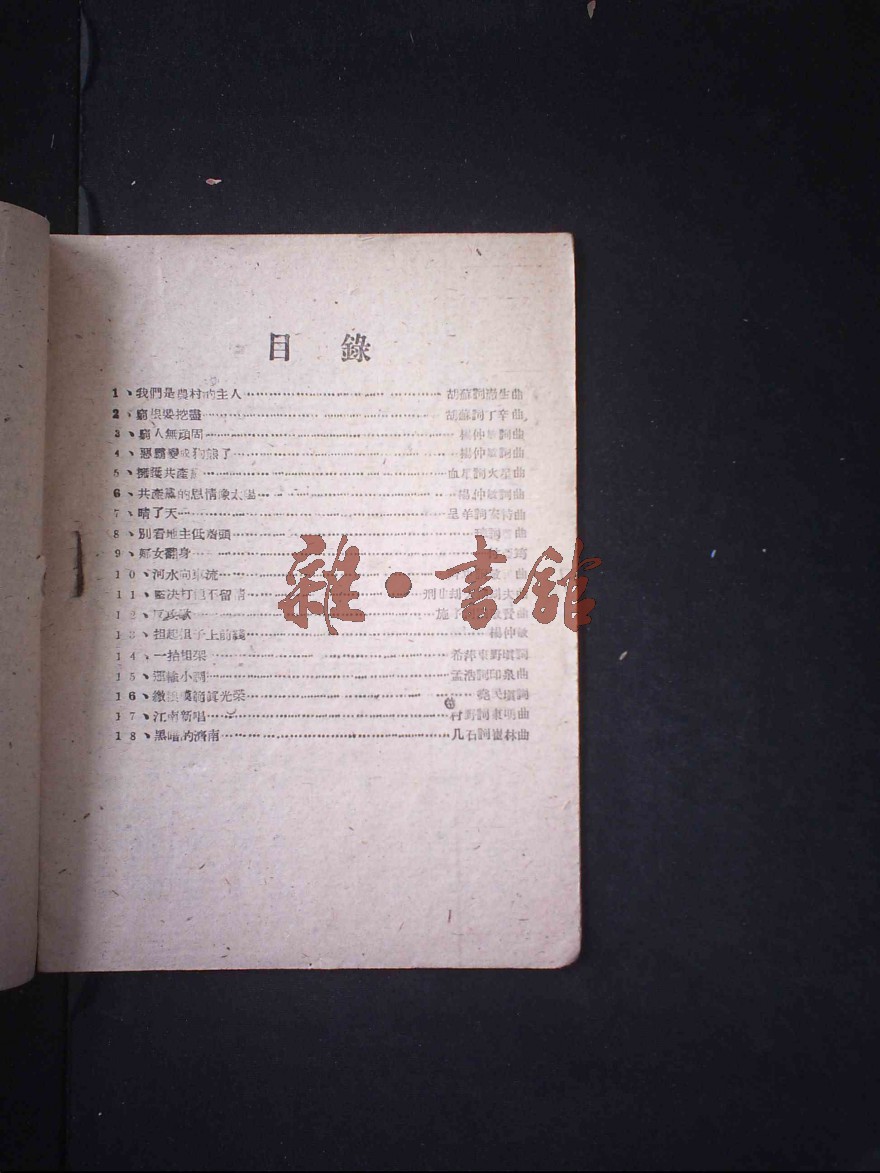 目 錄
1、我們是農村的主人 胡蘇詞 生曲
2、窮根要挖盡 胡蘇詞丁辛曲
3、窮人無頑固 楊仲敏詞曲
4、惡霸變成狗熊了 楊仲敏詞曲
5、擁護共產黨 血星詞火星曲
6、共產黨的恩情像太陽 楊仲敏詞曲
7、晴了天 星羊詞安特曲
8、別看地主低着頭 詞 曲
9、婦女翻身
10、河水向東流
11、堅决打 不留情
12、反攻歌 曲
13、担起担子上前綫 楊仲敏
14、一抬担架 希萍東野填詞
15、運輸小調 孟浩詞印泉曲
16、繳 模範眞光荣 民填詞
17、江南新唱 村野詞東明曲
18、黑暗的濟南 几石詞崔林曲
雜·書館